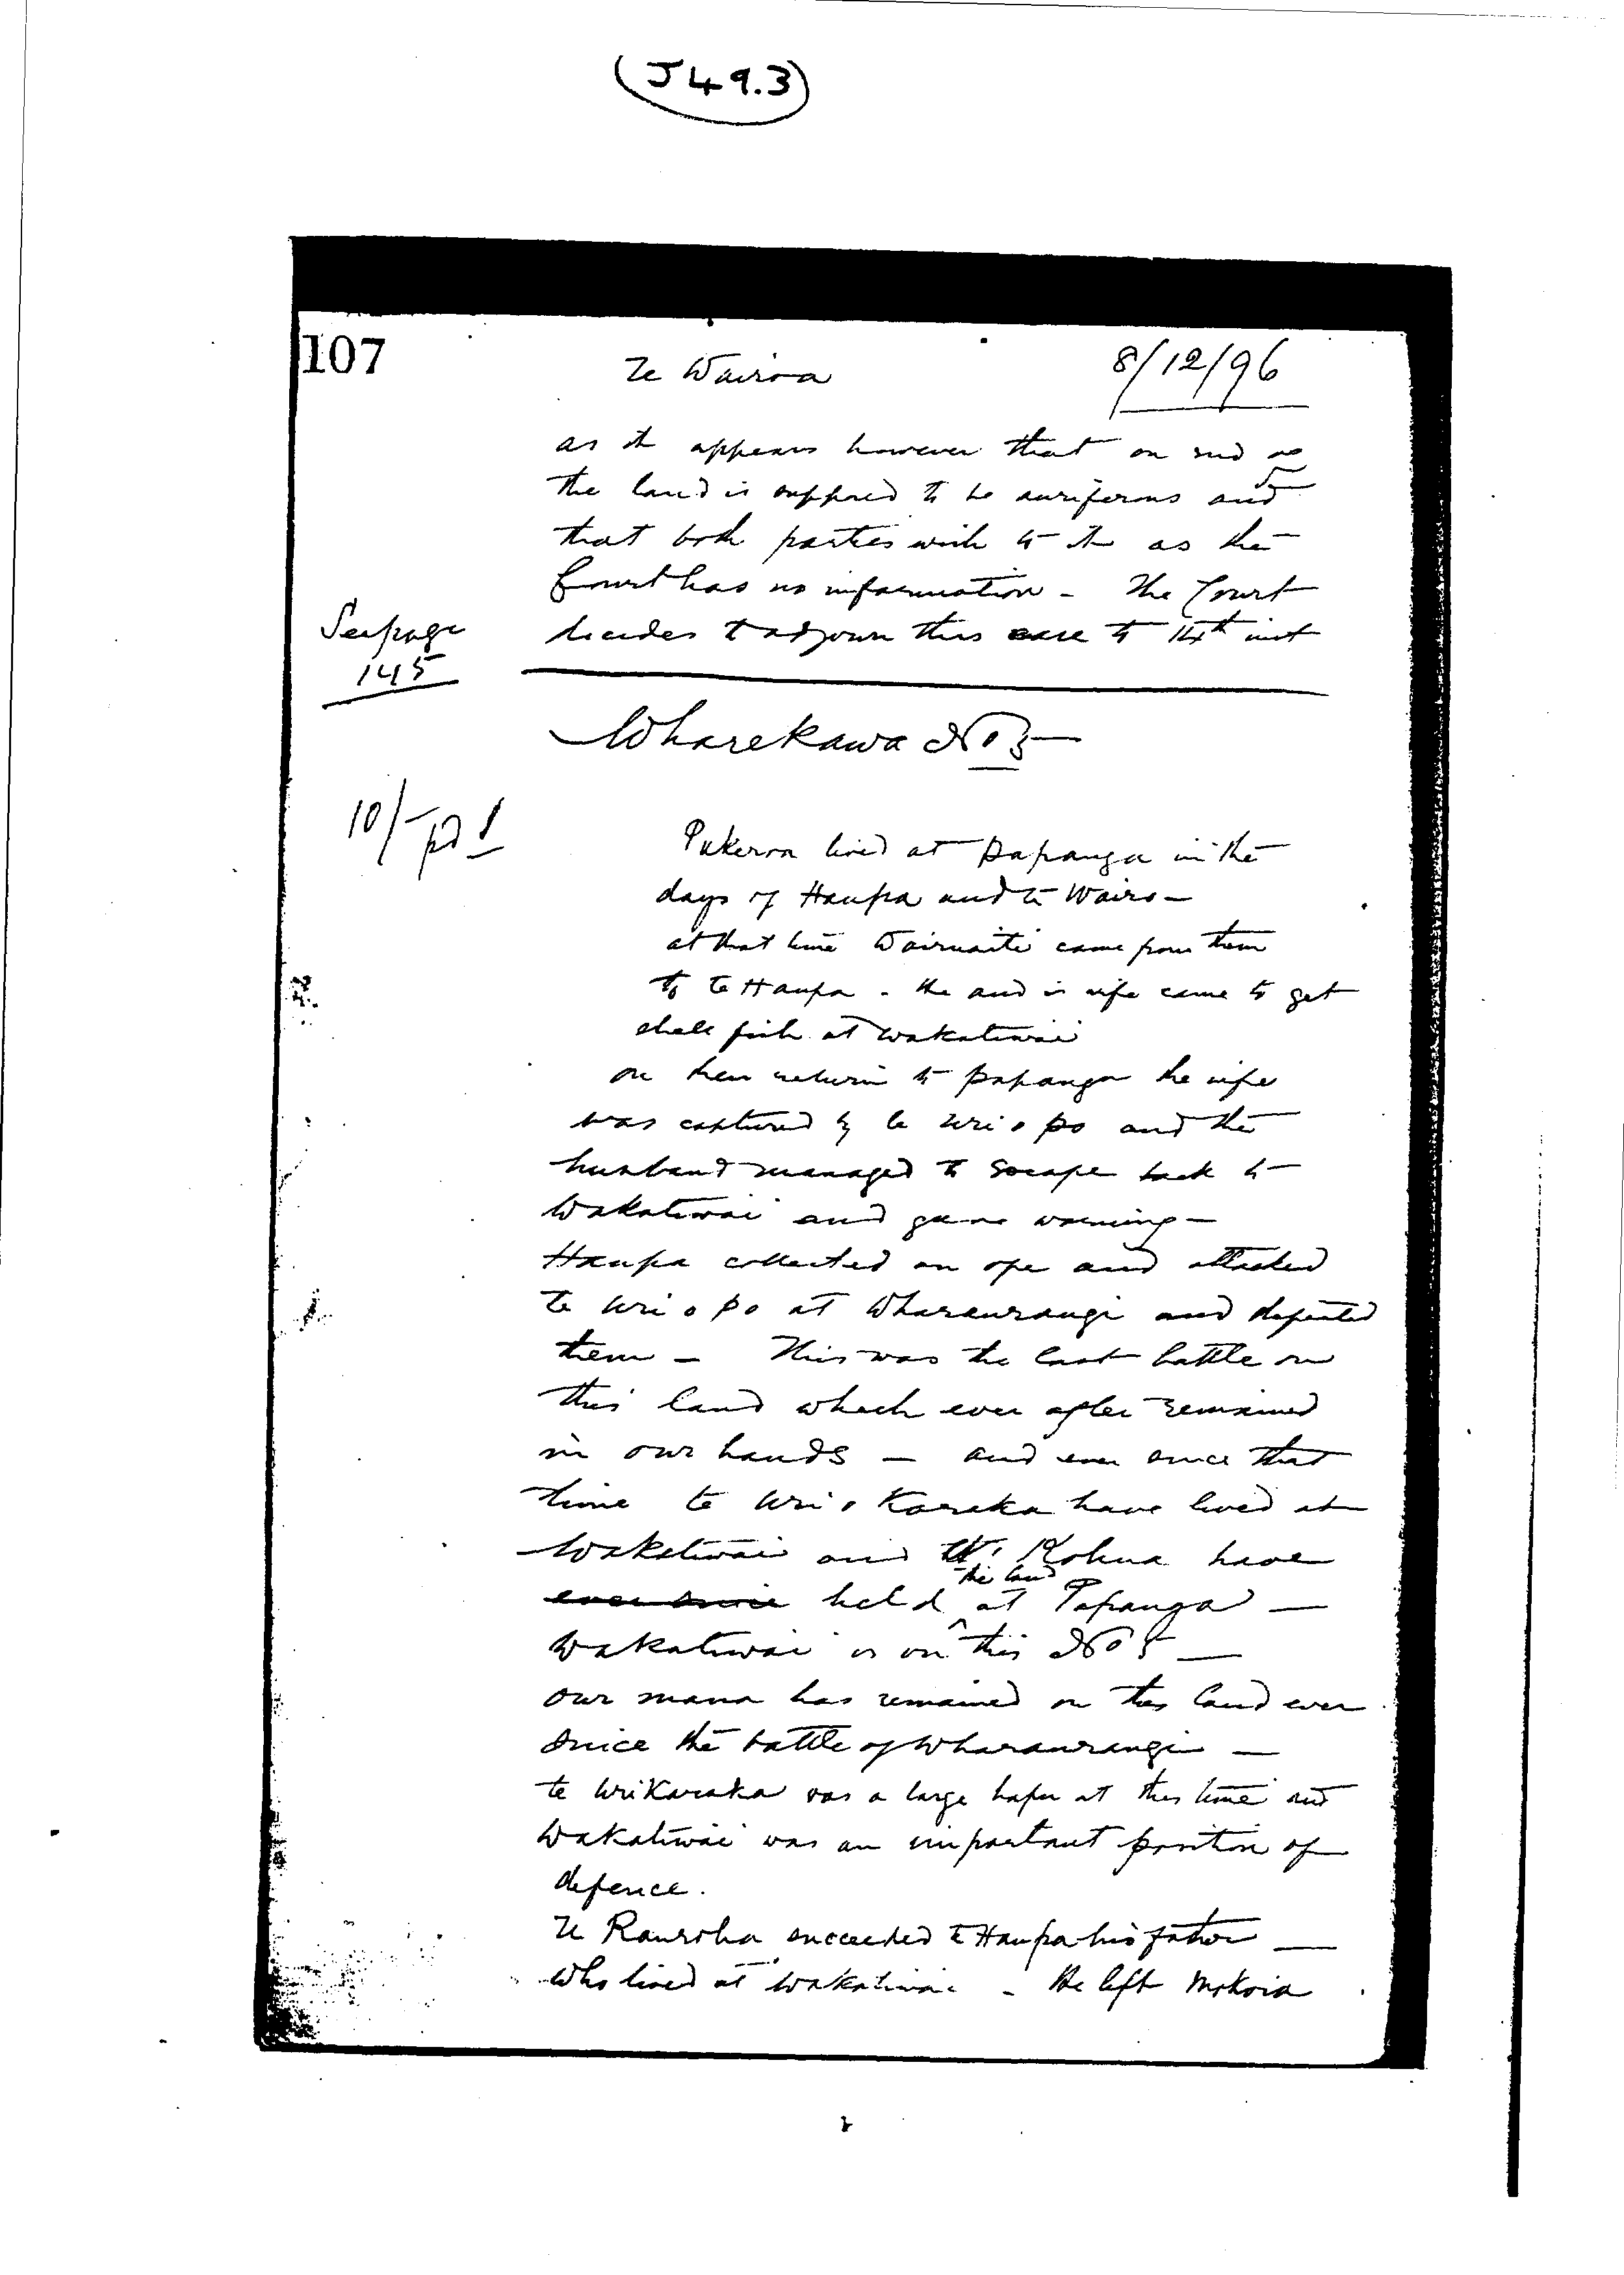 (J49.3)
107
Te Wairoa
8/12/96
as it appears however that on
the land is supposed to be auriferous and
that both parties wish to as the
Court has no information - The Court
decides to adjourn this case to 14th inst
See page
145
Wharekawa No 5
10/- pd
Pukeroa lived at Papanga in the
days of Haupa and te Wairo -
at that time came from them
to te Haupa - He and is wife came to get
shell fish at Wakatiwai
on their return to Papanga the wife
was captured by te Uri o po and the
husband managed to Escape back to
Wakatiwai and gave warning -
Haupa collected an ope and attacked
te Uri o po at Wharaurangi and defeated
them - This was the last battle on
this land which ever after remained
in our hands - and ever since that
time te Uri o Karaka have lived at
Wakatiwai and Kohua have
ever since held the land at Papanga -
Wakatiwai is on this No 5 -
our mana has remained on this land ever
since the battle of Wharaurangi -
te Uri Karaka was a large hapu at this time and
Wakatiwai was an important position of
defence.
Te Rauroha succeeded te Haupa his father -
who lived at Wakatiwai - He left Mokoia